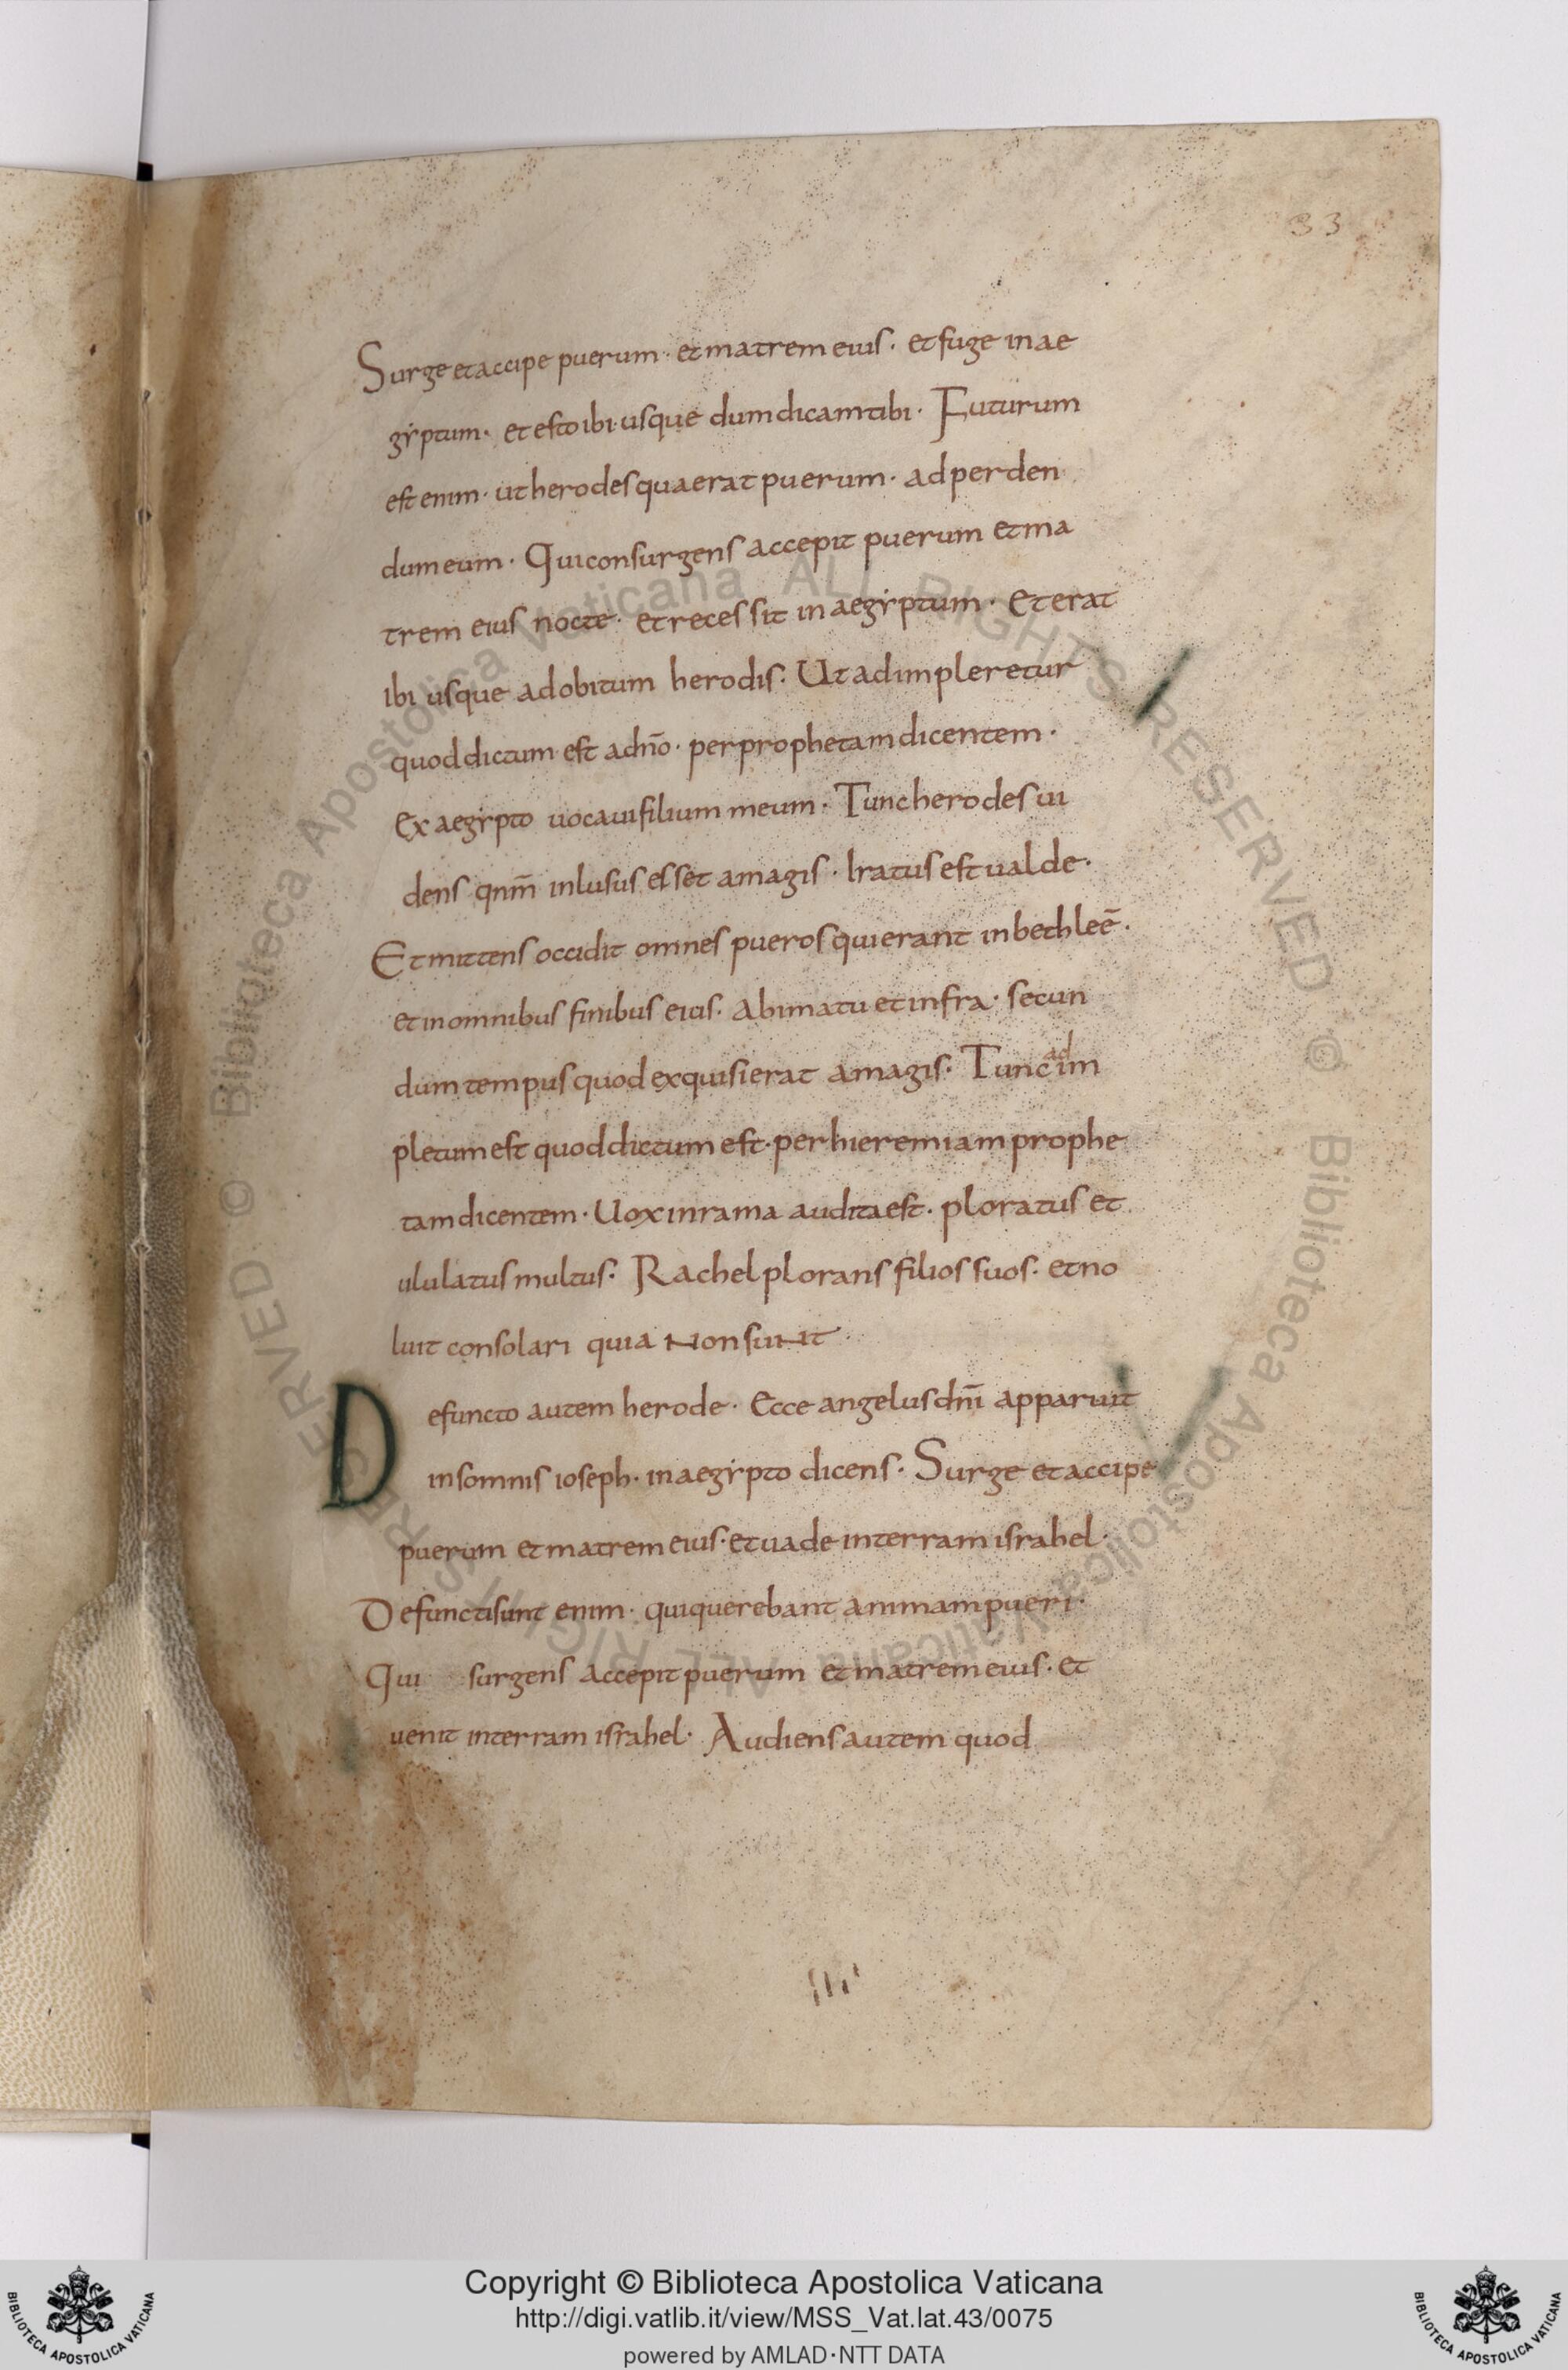 33
Surge et accipe puerum · et matrem eius · et fuge in ae
gẏptum · et esto ibi usque dum dicam tibi · Futurum
est enim · ut herodes quaerat puerum · ad perden
dum eum · Qui consurgens accepit puerum et ma
trem eius nocte · et recessit in aegẏptum · Et erat
ibi usque ad obitum herodis · Ut adimpleretur
quod dictum est a dn̄o · per prophetam dicentem ·
Ex aegẏpto uocaui filium meum · Tunc herodes ui
dens qnm̄ inlusus esset a magis · Iratus est ualde ·
Et mittens occidit omnes pueros qui erant in bethleē ·
et in omnibus finibus eius · A bimatu et infra · secun
dum tempus quod exquisierat a magis · Tunc adim
pletum est quod dictum est · per hieremiam prophe
tam dicentem · Uox in rama audita est · ploratus et
ululatus multus · Rachel plorans filios suos · et no
luit consolari quia non sunt ·
Defuncto autem herode · Ecce angelus dn̄i apparuit
in somnis ioseph · in aegẏpto dicens · Surge et accipe
puerum et matrem eius · et uade in terram israhel ·
Defuncti sunt enim · qui querebant animam pueri ·
Qui surgens accepit puerum et matrem eius · et
uenit in terram israhel · Audiens autem quod
Copyright © Biblioteca Apostolica Vaticana
http://digi.vatlib.it/view/MSS_Vat.lat.43/0075
powered by AMLAD·NTT DATA
BIBLIOTECA APOSTOLICA VATICANA
BIBLIOTECA APOSTOLICA VATICANA